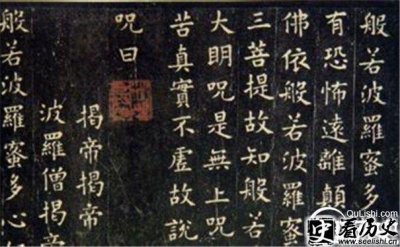 般若波羅蜜多
有恐怖遠離顛
佛依般若波羅蜜
三菩提故知般若
大明呪是無上呪
苦真實不虛故說
呪曰
揭帝揭帝
波羅僧揭帝
般若波羅蜜多心
QuLishi.com
看历史
www.seelishi.cn